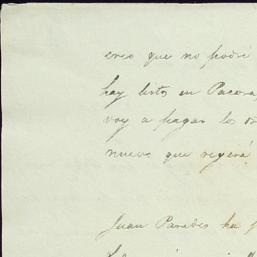 creo que no podré
hay listos en Pacora
voy a pagar los
nuevo que regerá
Juan Paredes ha